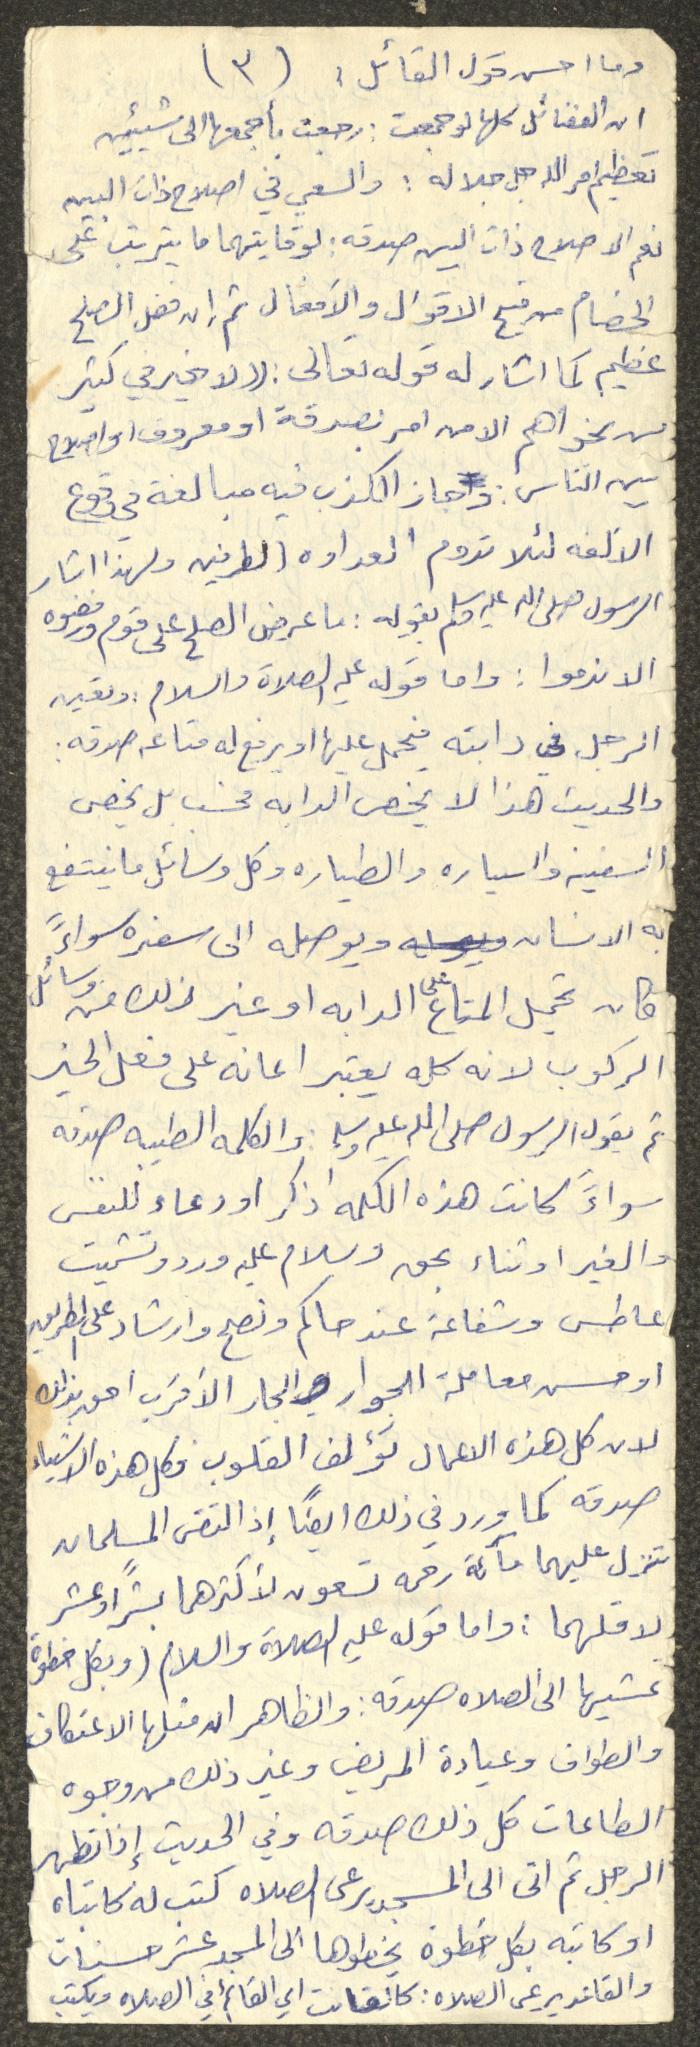 وما احسن قول القائل : (٣)
ان الفضائل كلها لو جمعت : رجعت بأجمعها الى شيئين
تعظيم امر الله جل جلاله : والسعي في اصلاح ذات البين
نعم الاصلاح ذات البين صدقه : لوقايتهما ما يترتب على
الخصام من قبح الاقوال والأفعال ثم إن فضل الصلح
عظيم كما اشار له قوله تعالى : (( لا خير في كثير
من نجواهم الا من امر بصدقة او معروف او اصلاح
بين الناس : وجاز الكذب فيه مبالغة في وقوع
الالفه لئلا تدوم العداوه الطرفين ولهذا اشار
الرسول صلى الله عليه وسلم بقوله : ما عرض الصلح على قوم ورفضوه
الا ندموا : واما قوله عليه الصلاة والسلام : وتعين
الرجل في دابته فتحمل عليها او يرفع له متاعه صدقه :
والحديث هذا لا يخص الدابه فحسب بل يخص
السفينه والسياره والطياره وكل وسائل ما ينتفع
به الانسان ويوصله الى سفره سواءً
كان تحميل المتاع على الدابه او غير ذلك من وسائل
الركوب لانه كله يعتبر اعانه على فعل الخير
ثم يقول الرسول صلى الله عليه وسلم : والكلمه الطيبه صدقه
سواءً كانت هذه الكلمه اذكر او دعاء للنفس
والغير او ثناء بحق وسلام عليه ورد وتشميت
عاطس وشفاعة عند حاكم ونصح وارشاد على الطريق
او حسن معاملة الجوار والجار الأقرب احق بذلك
لان كل هذه الاعمال تؤلف القلوب وكل هذه الاشياء
صدقه كما ورد في ذلك ايضًا إذ التقى المسلمان
تنزل عليهما مائة رحمه تسعون لأكثرهما بشرًا وعشر
لاقلهما : واما قوله عليه الصلاة والسلام ( وبكل خطوة
تمشيها الى الصلاه صدقه : والظاهر ان مثلها الاعتكاف
والطواف وعيادة المريض وغير ذلك من وجوه
الطاعات كل ذلك صدقه وفي الحديث إذا تطهر
الرجل ثم اتى الى المسجد يرعى الصلاه كتب له كاتباه
او كاتبه بكل خطوة يخطوها الى المسجد عشر حسنات
والقاعد يرعى الصلاه : كالقانت اي القائم في الصلاه ويكتب